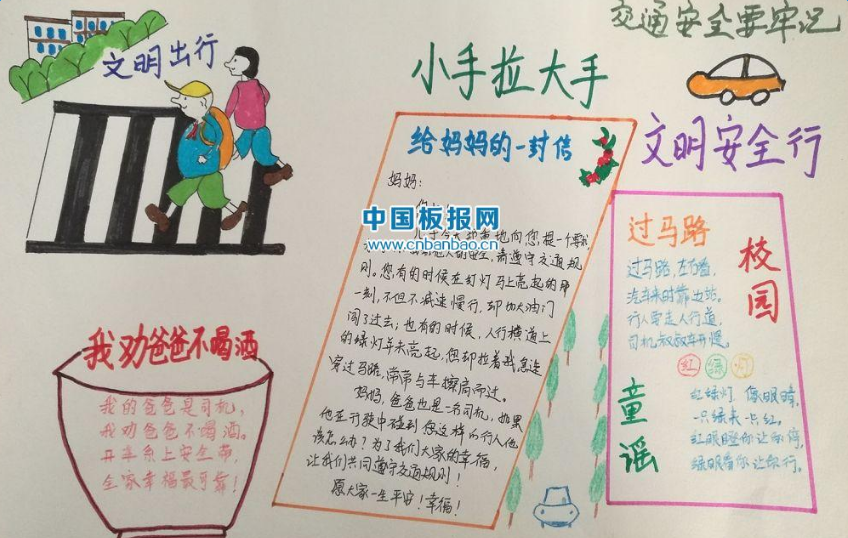 交通安全要牢记
文明出行
小手拉大手
文明安全行
给妈妈的一封信
妈妈:
中国板报网
www.cnbanbao.cn
地向您提一个要求
安全,请遵守交通规
则。您有的时候在红灯马上亮起的那
一刻,不但不减速慢行,却加大油门
闯了过去;也有的时候,人行横道上
的绿灯并未亮起,您却拉着我急速
穿过马路,常常与车擦肩而过。
妈妈,爸爸也是一名司机,如果
他在行驶中碰到您这样的行人他
该怎么办?为了我们大家的幸福,
让我们共同遵守交通规则!
愿大家一生平安!幸福!
我劝爸爸不喝酒
我的爸爸是司机,
我劝爸爸不喝酒。
开车系上安全带,
全家幸福最可靠!
校园
童谣
过马路
过马路,左右看,
汽车来时靠边站。
行人要走人行道,
司机叔叔车开慢。
红 绿 灯
红绿灯 像眼睛,
一只绿来一只红。
红眼瞪你让你停,
绿眼看你让你行。